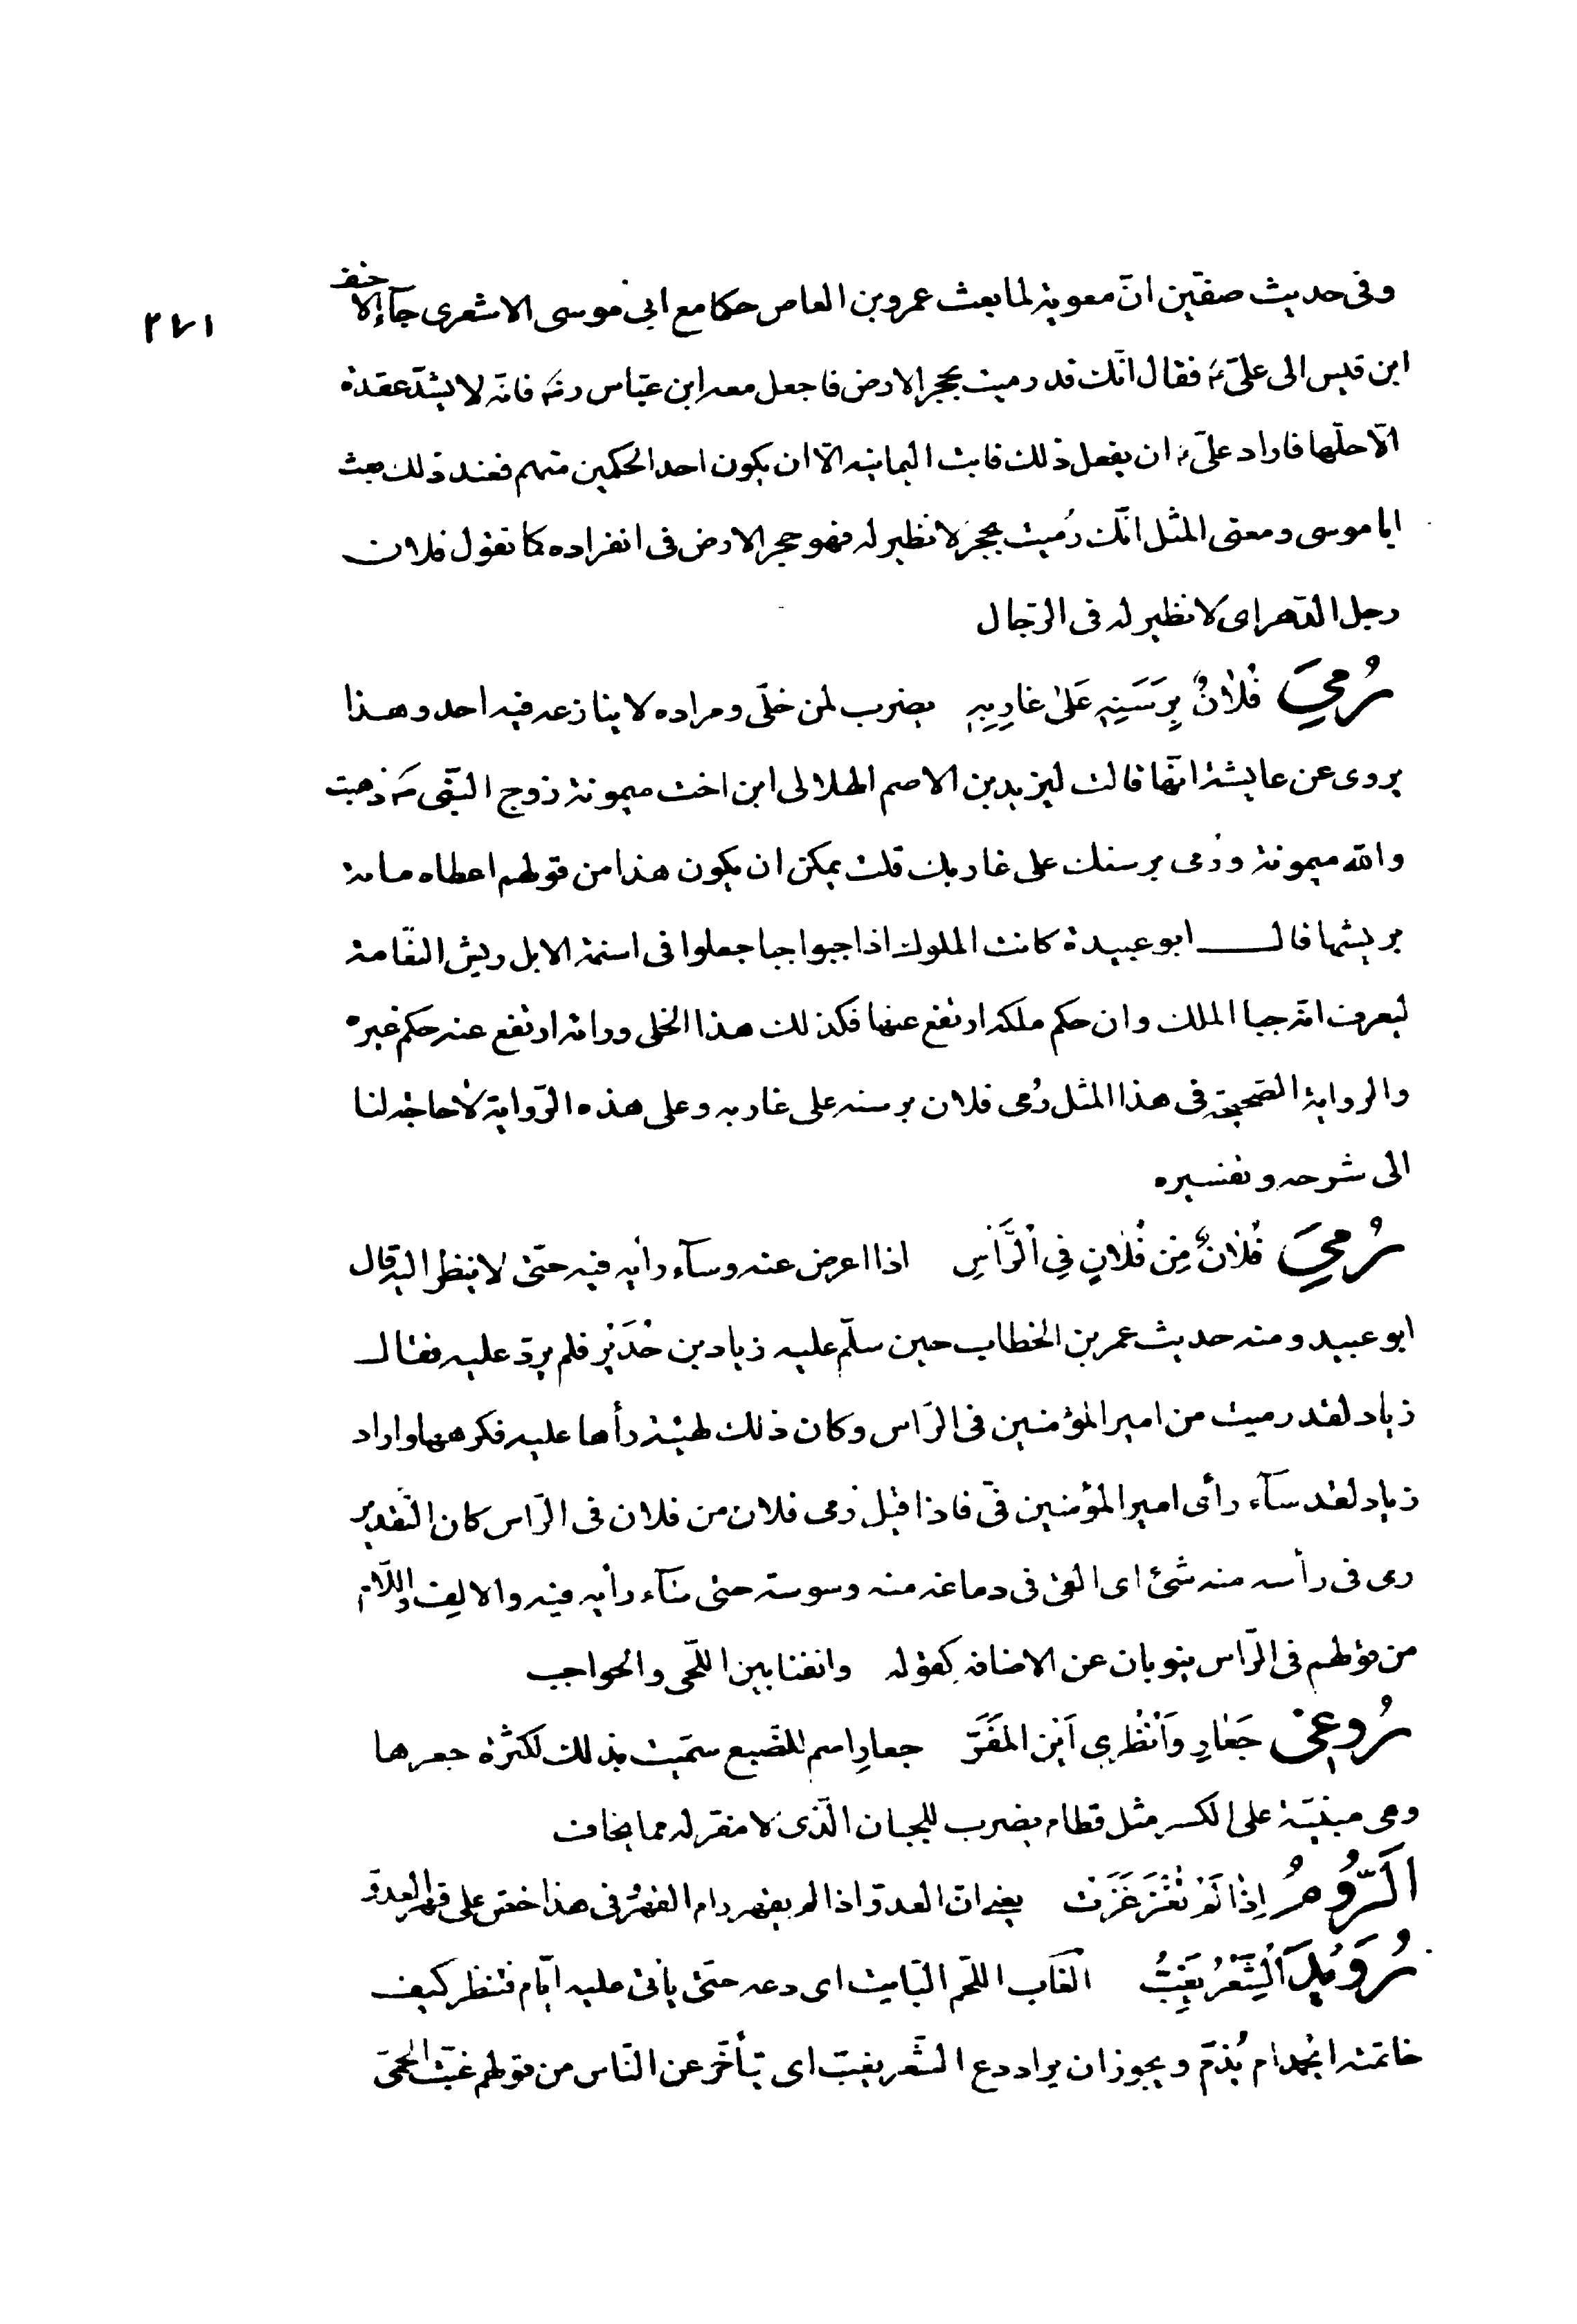 ٢٧١
وفى حديث صفّين انّ معوية لما بعث عمرو بن العاص حكما مع ابى موسى الاشعرى جآء الاحنف
ابن قيس الى علىّ فقال انّك قد رميت بحجر الارض فاجعل معه ابن عبّاس فانّه لا يشدّ عقدة
الّا حلّها فاراد علىّ ان يفعل ذلك فابت اليمانية الّا ان يكون احد الحكمين منهم فعند ذلك بعث
ابا موسى ومعنى المثل انّك رُميت بحجر لا نظير له فهو حجر الارض فى انفراده كما تقول فلان
رجل الدّهر اى لا نظير له فى الرّجال
رُمِيَ فُلَانٌ بِرَسَنِهِ عَلَى غَارِبِهِ يضرب لمن خلّى ومراده لا ينازعه فيه احد وهذا
يروى عن عايشة انّها قالت ليزيد بن الاصم الهلالى ابن اخت ميمونة زوج النّبى ذهبت
والله ميمونة ورُمى برسنك على غاربك قلت يمكن ان يكون هذا من قولهم اعطاه مائة
بريشها قال ابو عبيدة كانت الملوك اذا حبوا حبا جعلوا فى اسنمة الابل ريش النّعامة
ليعرف انّه حبا الملك وان حكم ملكه ارتفع عنها فكذلك هذا الخلى ورائه ارتفع عنه حكم غيره
والرواية الصّحيحة فى هذا المثل رُمى فلان برسنه على غاربه وعلى هذه الرّواية لا حاجة لنا
الى شرحه وتفسيره
رُمِيَ فُلَانٌ مِنْ فُلَانٍ فِي الرَّأْسِ اذا اعرض عنه وسآء رأيه فيه حتّى لا ينظر اليه قال
ابو عبيد ومنه حديث عمر بن الخطاب حين سلّم عليه زياد بن حُدَيْر فلم يردّ عليه فقال
زياد لقد رميت من امير المؤمنين فى الرّاس وكان ذلك لهيئة رأها عليه فكرهها واراد
زياد لقد سآء رأى امير المؤمنين فىّ فاذا قيل رُمى فلان من فلان فى الرّاس كان التّقدير
رمى فى رأسه منه شئ اى القى فى دماغه منه وسوسة حتى سآء رأيه فيه والالف واللّام
من قولهم فى الرّاس ينوبان عن الاضافة كقوله وانفنا بين اللّحى والحواجب
رُوعِي جَعَارِ وَانْظُرِي اَيْنَ المَفَرّ جعارِ اسم للضّبع سمّيت بذلك لكثرة جعرها
وهى مبنيّة على الكسر مثل قطام يضرب للجبان الّذى لا مفر له مما يخاف
الَرُّومُ اِذَا لَمْ تُغْزَ غَزَتْ يعنى انّ العدوّ اذا لم يقهر رام القهر فى هذا حضّ على قهر العدوّ
رُوَيْدَ الشِّعْرَ يَغِبُّ الغَاب اللّحم البَايت اى دعه حتّى يأتى عليه ايّام فتنظر كيف
خاتمته ايُحمد ام يُذمّ ويجوز ان يراد دع الشّعر يغبّ اى يتأخّر عن النّاس من قولهم غبّت الحمّى